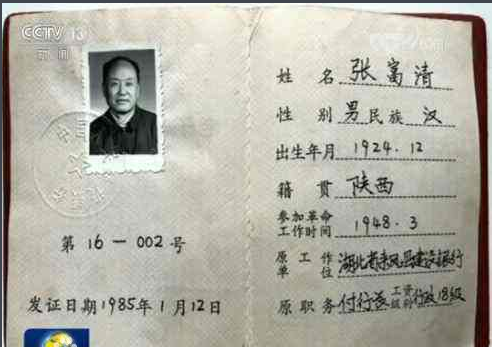 CCTV 13
新闻
cctv.com
第 16-002 号
发证日期 1985年1月12日
姓名 张富清
性别 男 民族 汉
出生年月 1924.12
籍贯 陕西
参加革命
工作时间 1948.3
原工作
单位 湖北省来凤县建设银行
原职务 付行长 工资
级别 行政18级